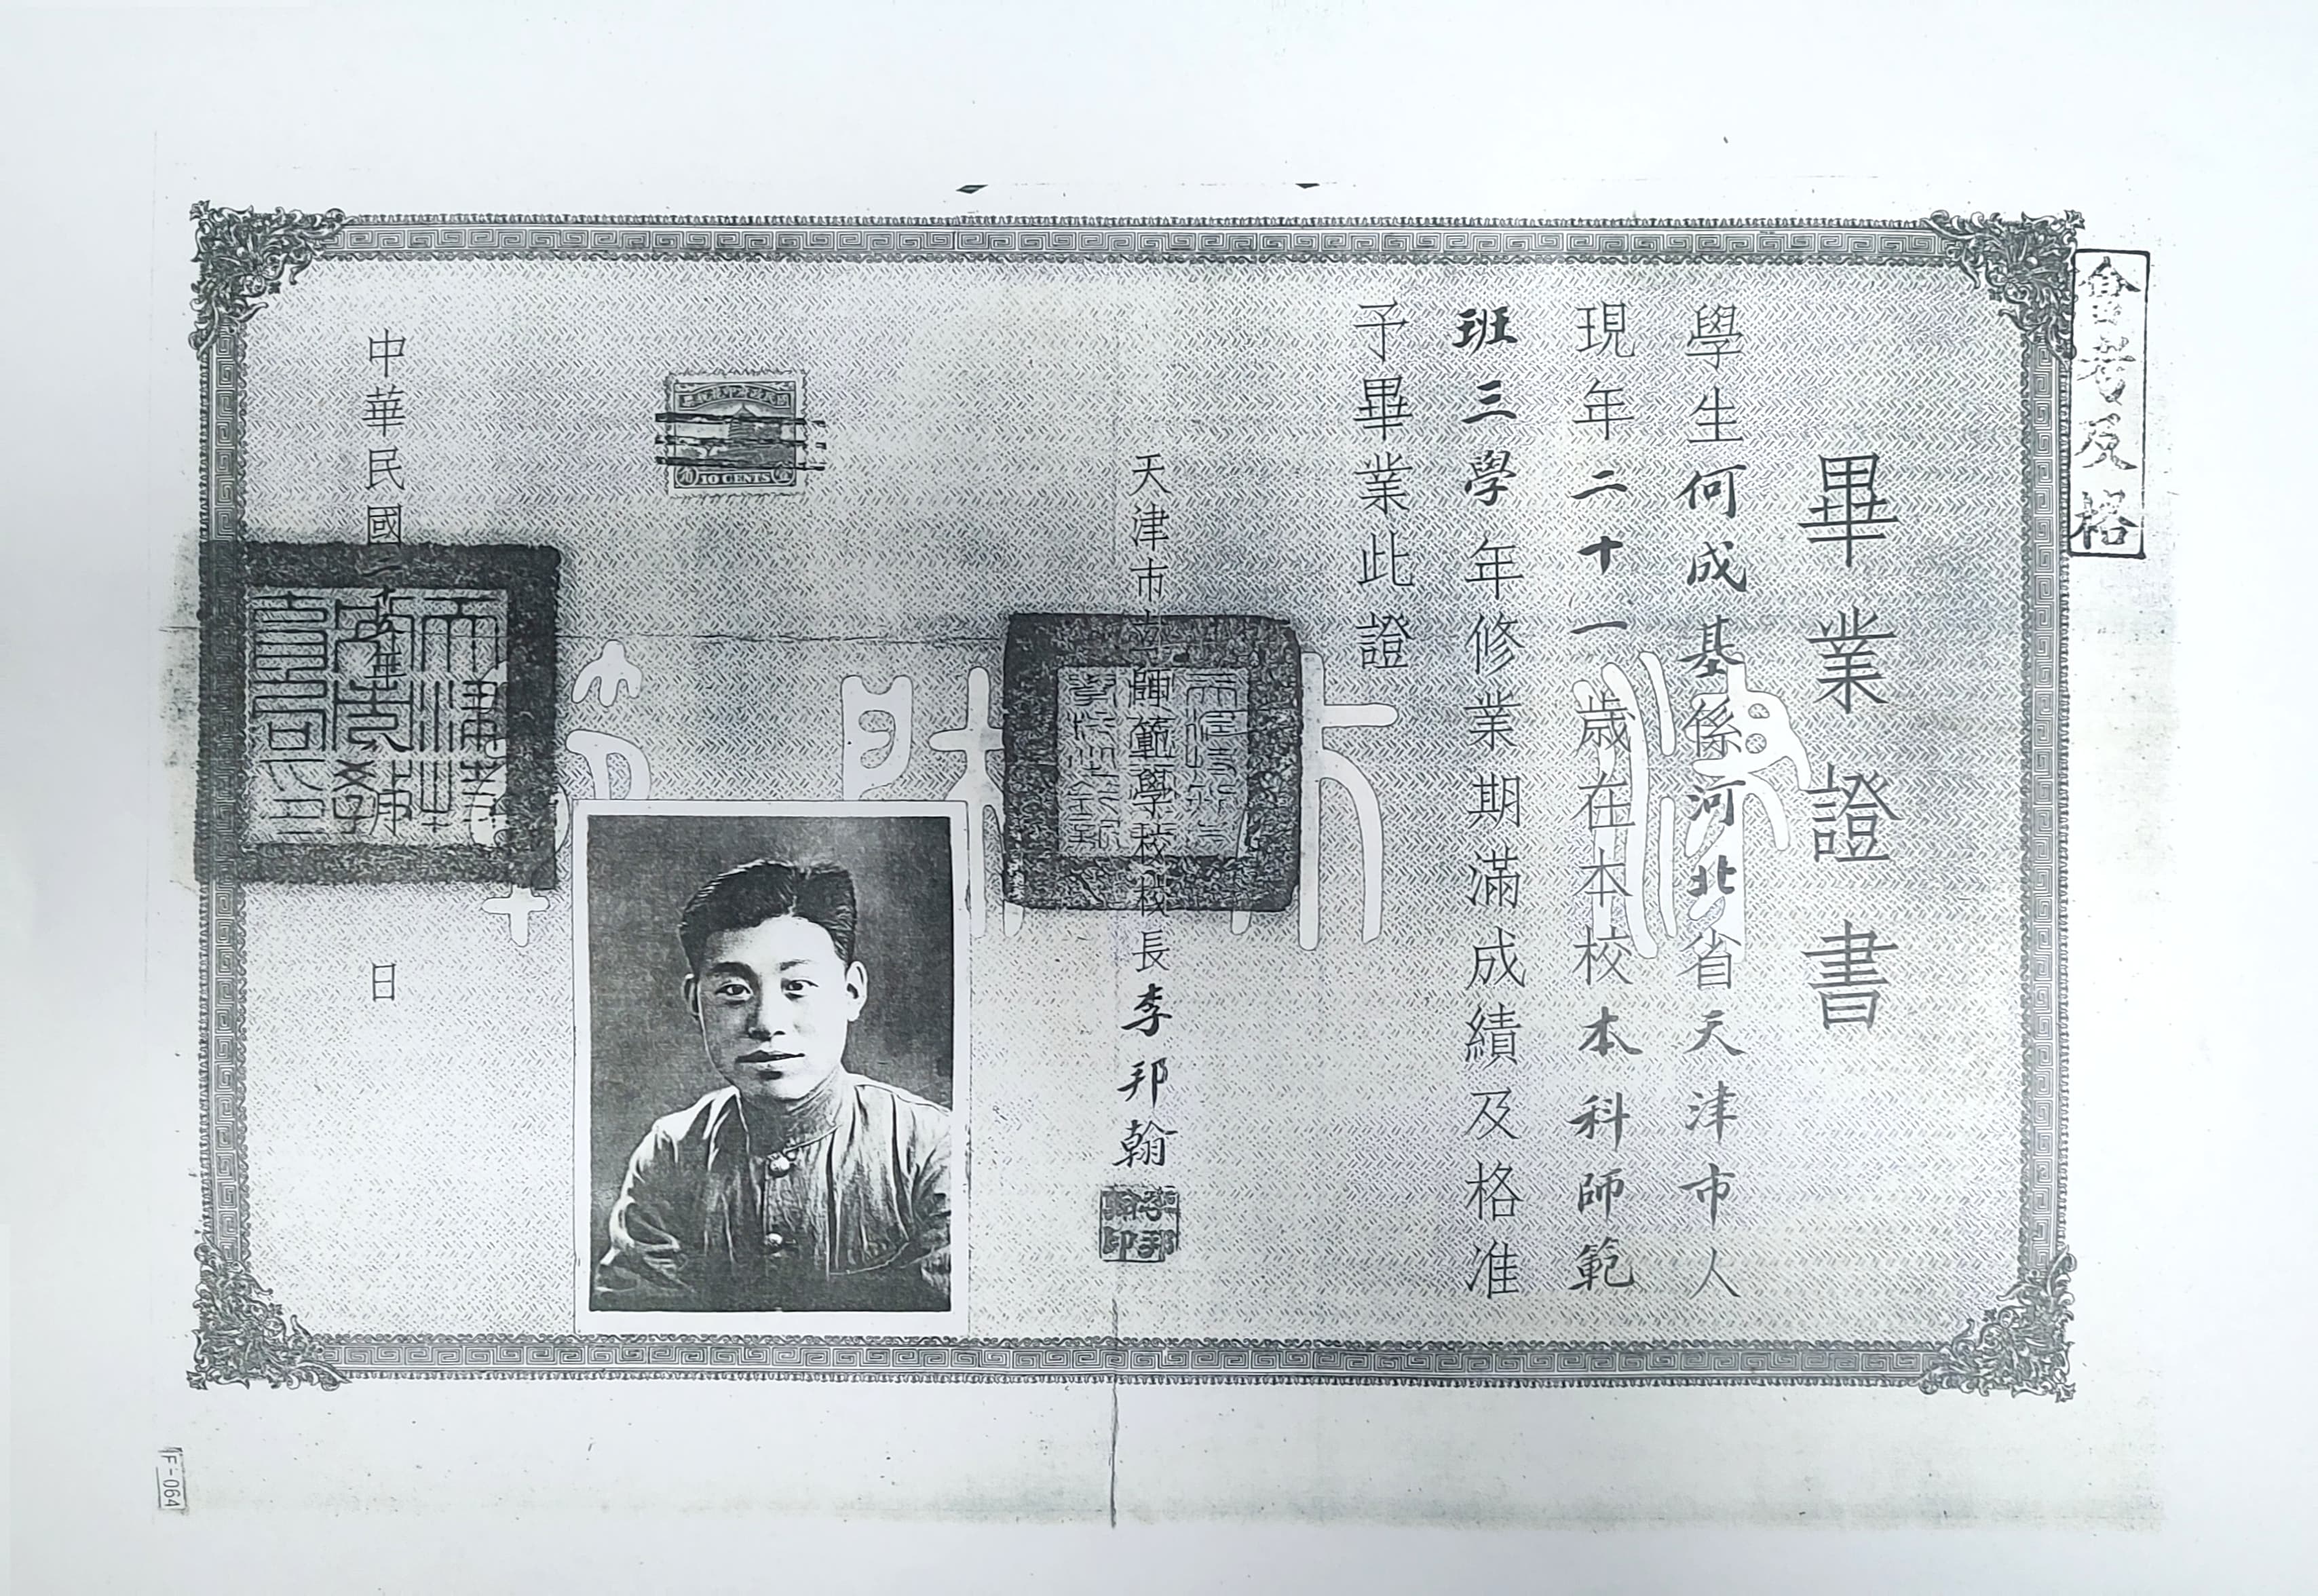 會考及格
畢業證書
學生何成基係河北省天津市人
現年二十一歲在本校本科師範
班三學年修業期滿成績及格准
予畢業此證
天津市立師範學校校長李邦翰
李邦翰印
10 CENTS
中華民國二十五年
日
F-064